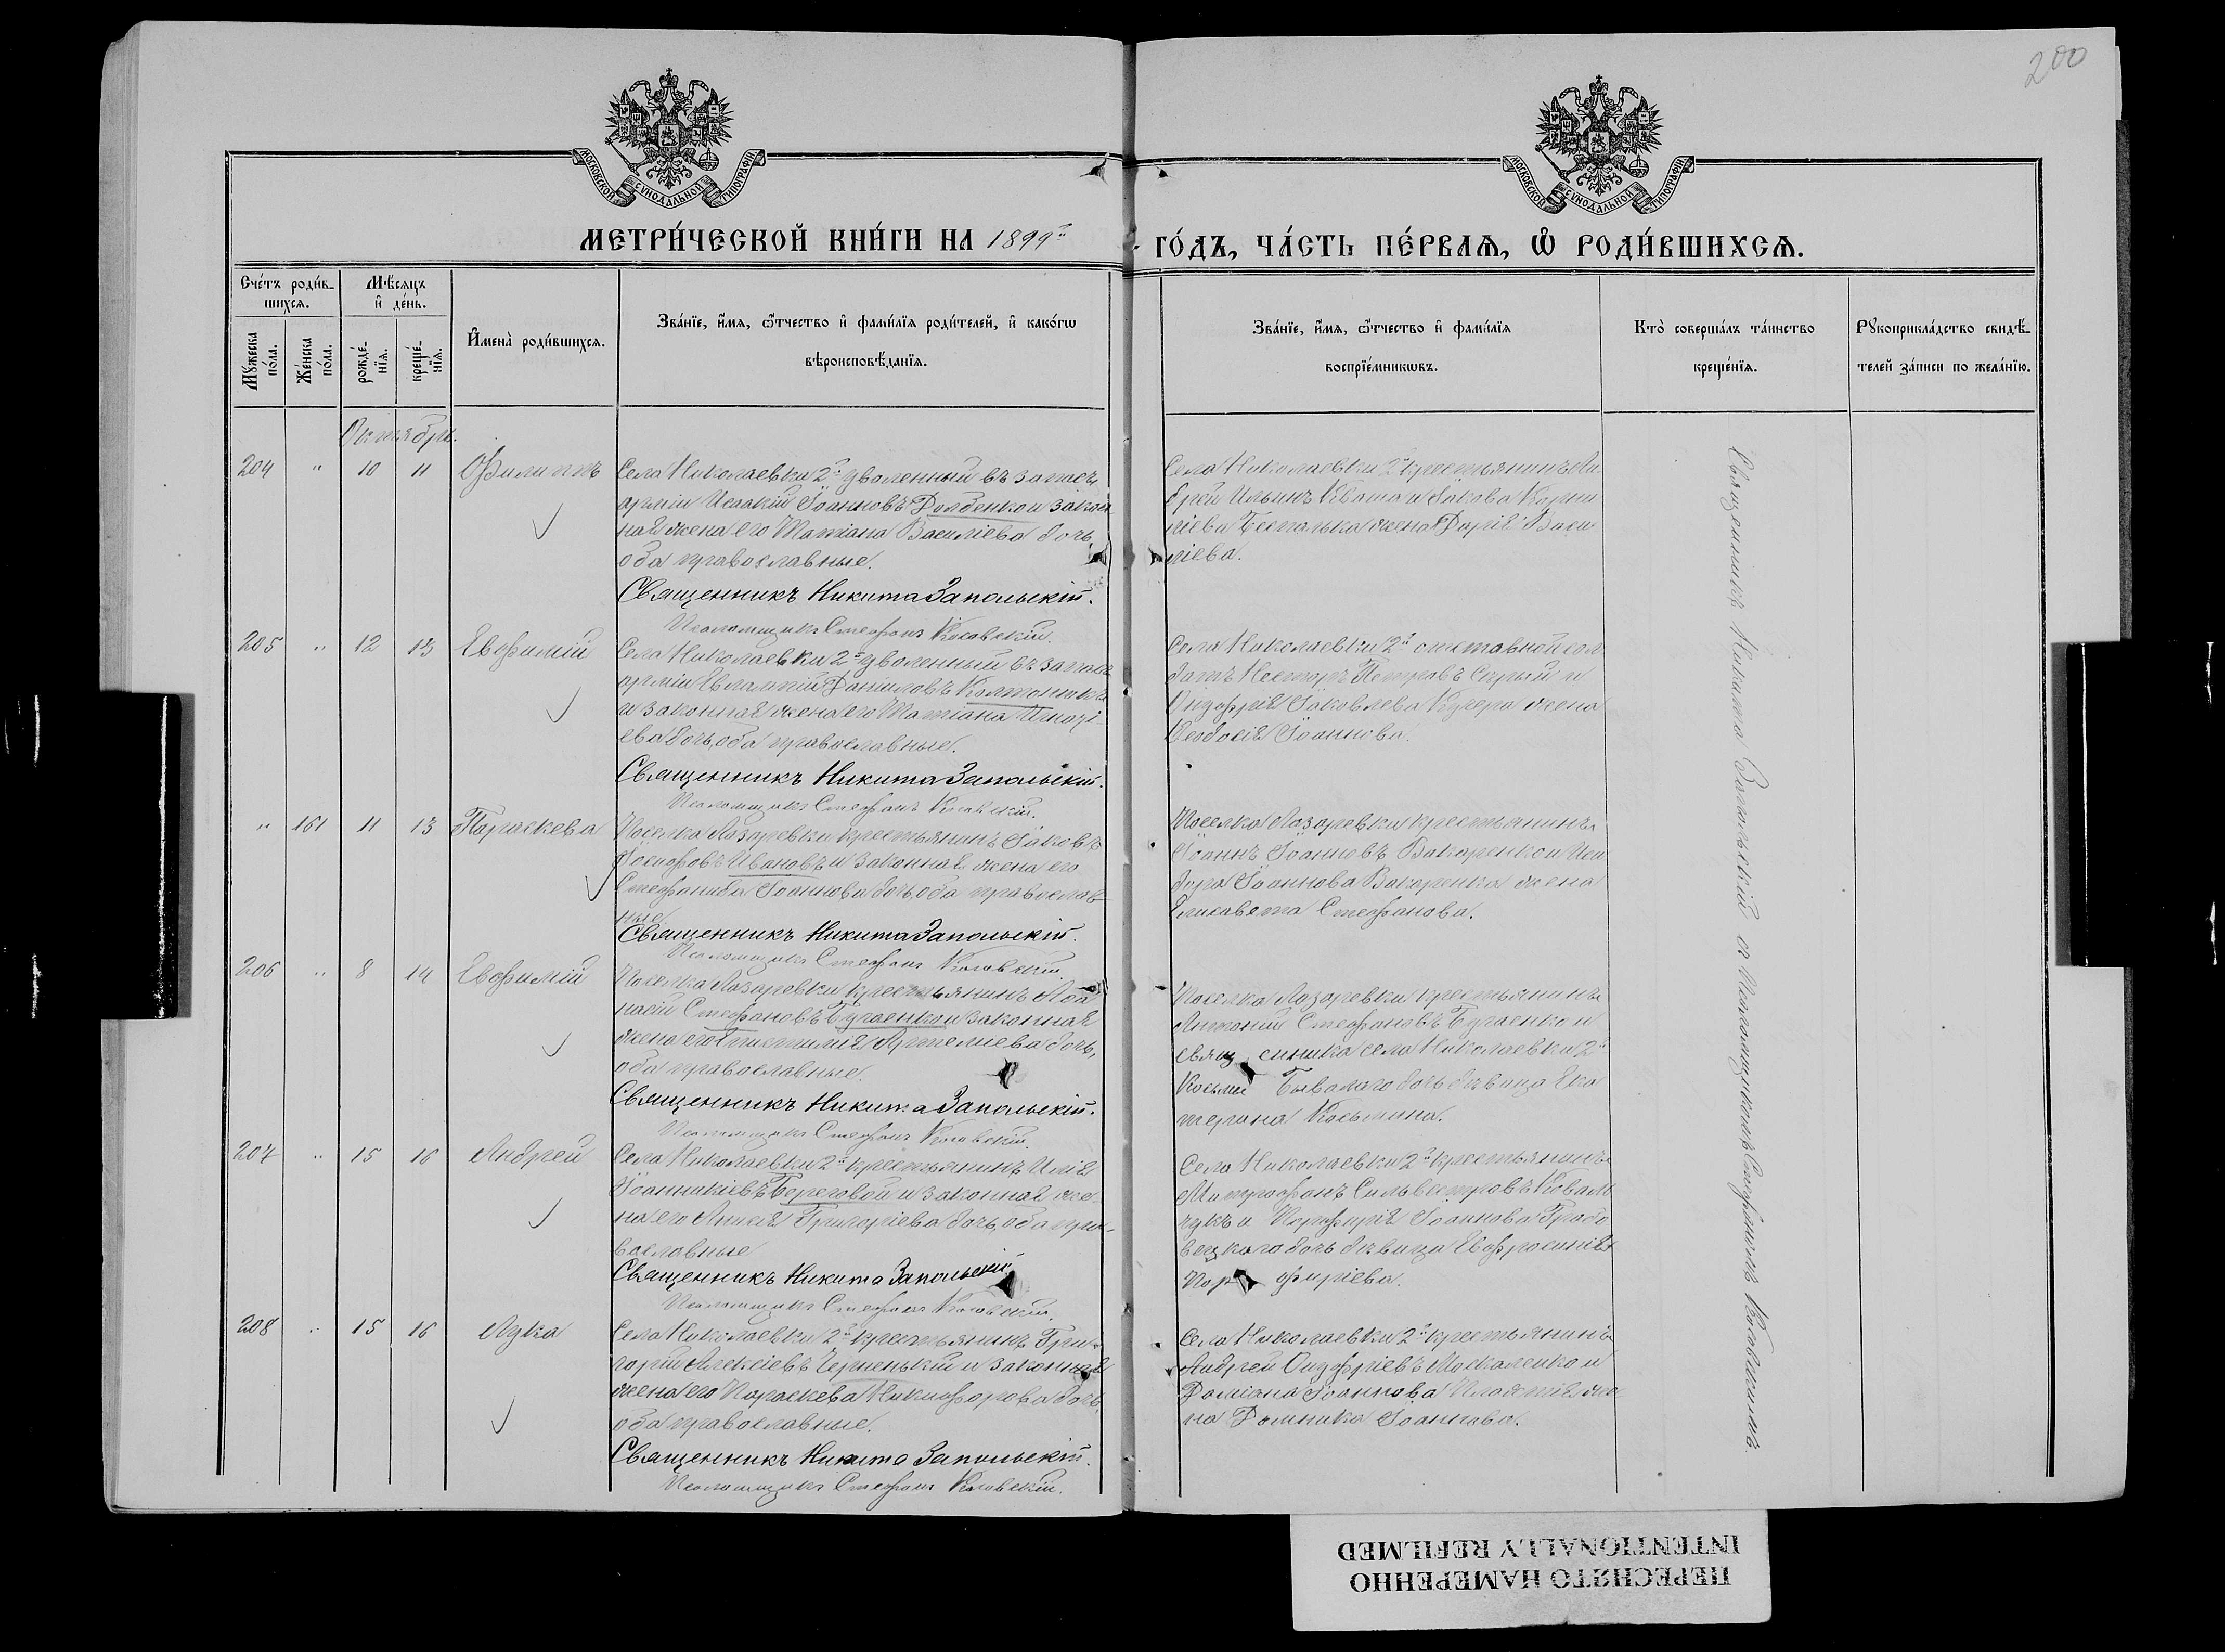 200
МОСКОВСКОЙ СУНОДАЛЬНОЙ ТИПОГРАФІИ
МОСКОВСКОЙ СУНОДАЛЬНОЙ ТИПОГРАФІИ
МЕТРИ́ЧЕСКОЙ КНИ́ГИ НА 1899й
ГО́ДЪ, ЧА́СТЬ ПЕ́РВАѦ, Ѡ РОДИ́ВШИХСѦ.
Сче́тъ роди́в-
шихсѧ.
Мѣ́сѧцъ
и҆ де́нь.
Мꙋ́жеска
по́ла.
Же́нска
по́ла.
рожде́-
нїѧ.
креще́-
нїѧ.
И҆мена̀ роди́вшихсѧ.
Зва́нїе, и҆́мѧ, ѻ҆́тчество и҆ фами́лїѧ роди́телей, и҆ како́гѡ
вѣроисповѣ́данїѧ.
Зва́нїе, и҆́мѧ, ѻ҆́тчество и҆ фами́лїѧ
воспрїе́мникѡвъ.
Кто̀ соверша́лъ та́инство
креще́нїѧ.
Рꙋкоприкла́дство свидѣ́-
телей за́писи по жела́нїю.
Октябрь.
204 " 10 11 Филиппъ
Села Николаевки 2й уволенный въ запасъ
арміи Исаакій Іоанновъ Долбенко и закон
ная жена его Татіана Василіева дочь,
оба православные.
Священникъ Никита Запольскій.
Псаломщикъ Стефанъ Косовскій.
Села Николаевки 2й крестьянинъ Ан
дрей Ильинъ Кваша и Іакова Корни
ліева Беспалька жена Дарія Васи
ліева.
205 " 12 13 Евфимій
Села Николаевки 2й уволенный въ запасъ
арміи Евлампій Даниловъ Колтонюкъ
и законная жена его Татіана Игнаті-
ева дочь, оба православные.
Священникъ Никита Запольскій.
Псаломщикъ Стефанъ Косовскій.
Села Николаевки 2й отставной сол
датъ Несторъ Петровъ Сирый и
Онуфрія Іаковлева Кучера жена
Феодосія Іоаннова.
" 161 11 13 Параскева
Поселка Лазаревки крестьянинъ Іаковъ
Іосифовъ Ивановъ и законная жена его
Стефанида Іоаннова дочь, оба православ-
ные.
Священникъ Никита Запольскій.
Псаломщикъ Стефанъ Косовскій.
Поселка Лазаревки крестьянинъ
Іоаннъ Іоанновъ Вакаренко и Иси
дора Іоаннова Вакаренка жена
Елисавета Стефанова.
206 " 8 14 Евфимій
Поселка Лазаревки крестьянинъ Афа
насій Стефановъ Бугаенко и законная
жена его Епистимія Артеміева дочь,
оба православные.
Священникъ Никита Запольскій.
Псаломщикъ Стефанъ Косовскій.
Поселка Лазаревки крестьянинъ
Антоній Стефановъ Бугаенко и
священника села Николаевки 2й
Косьмы Бывалаго дочь девица Ека
терина Косьмина.
207 " 15 16 Андрей
Села Николаевки 2й крестьянинъ Илія
Іоанникіевъ Береговой и законная же-
на его Анисія Григоріева дочь, оба пра-
вославные
Священникъ Никита Запольскій.
Псаломщикъ Стефанъ Косовскій.
Села Николаевки 2й крестьянинъ
Митрофанъ Сильвестровъ Коваль
чукъ и Порфирія Іоаннова Грабо
вецкаго дочь девица Евфросинія
Порфиріева.
208 " 15 16 Лука
Села Николаевки 2й крестьянинъ Гри-
горій Алексіевъ Черненькій и законная
жена его Параскева Никифорова дочь,
оба православные.
Священникъ Никита Запольскій.
Псаломщикъ Стефанъ Косовскій.
Села Николаевки 2й крестьянинъ
Андрей Онуфріевъ Москаленко и
Даміана Іоаннова жe
на Домника Іоаннова.
Священникъ Никита Запольскій съ Псаломщикомъ Стефаномъ Косовскимъ.
ПЕРЕСНЯТО НАМЕРЕННО
INTENTIONALLY REFILMED